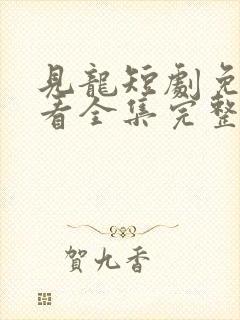 見龍短劇免
看全集完整
賀九香